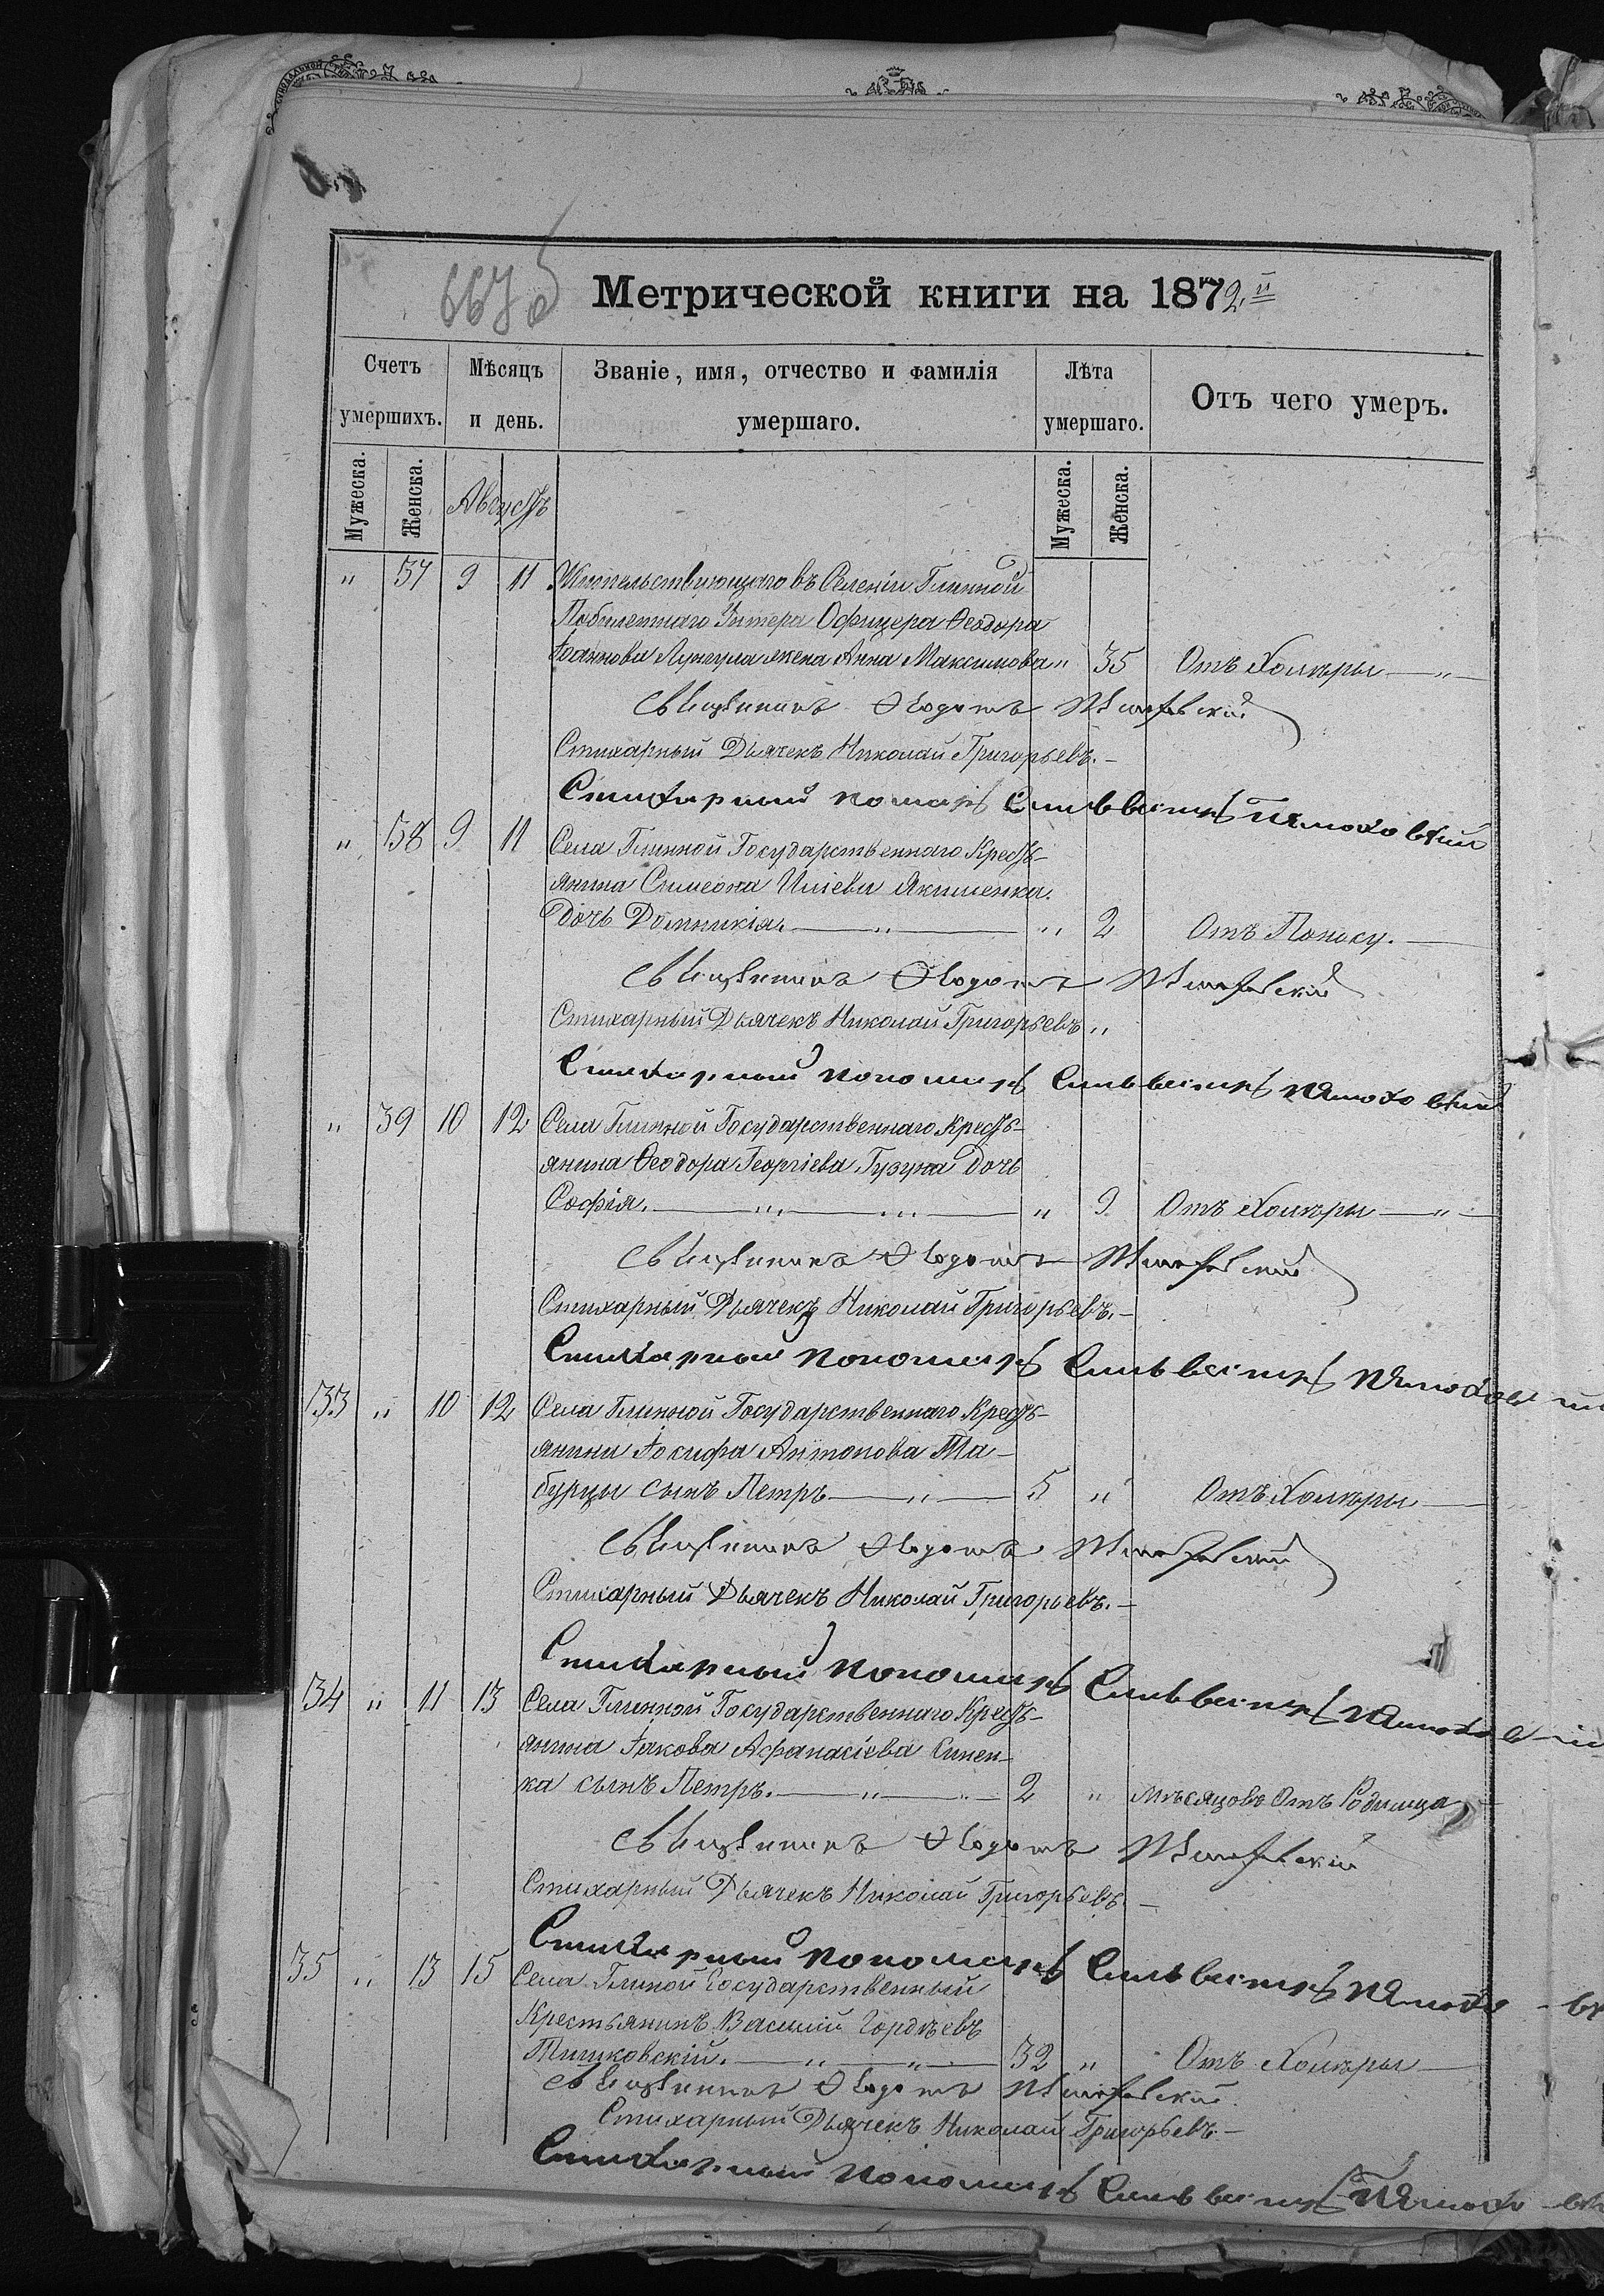 667 об
Метрической книги на 1872й
Счетъ умершихъ. Мѣсяцъ и день. Званіе, имя, отчество и фамилія умершаго. Лѣта умершаго. Отъ чего умеръ.
Мужеска. Женска. Августъ Мужеска. Женска.
" 37 9 11 Жительствующаго въ Селеніи Глинной
Побилетнаго Унтера Офицера Ѳеодора
Іоаннова Лунгула жена Анна Максимова " 35 Отъ Холеры — " —
Священникъ Ѳеодотъ
Стихарный Дьячекъ Николай Григорьевъ. —
Стихарный помарь Сильвестръ
" 38 9 11 Села Глинной Государственнаго Кресть-
янина Симеона Иліева Якименка
дочь Домникія. — " — " 2 Отъ Поносу. —
Священникъ Ѳеодотъ
Стихарный Дьячекъ Николай Григорьевъ "
Стихарный пономарь Сильвестръ
" 39 10 12 Села Глинной Государственнаго Кресть-
янина Ѳеодора Георгіева Гузуна дочь
Софія. — " — " — " 9 Отъ Холеры — " —
Священникъ Ѳеодотъ
Стихарный Дьячекъ Николай Григорьевъ. —
Стихарный пономарь Сильвестръ
33 " 10 12 Села Глинной Государственнаго Кресть-
янина Іосифа Антонова Та-
бурцы сынъ Петръ — " — 5 " Отъ Холеры —
Священникъ Ѳеодотъ
Стихарный Дьячекъ Николай Григорьевъ. —
Стихарный пономарь Сильвестръ
34 " 11 13 Села Глинной Государственнаго Кресть-
янина Іакова Аѳанасіева Синен-
ка сынъ Петръ. — " — " — 2 " мѣсяцовъ Отъ Родимца —
Священникъ Ѳеодотъ
Стихарный Дьячекъ Николай Григорьевъ. —
Стихарный пономарь Сильвестръ
35 " 13 15 Села Глиной Государственный
Крестьянинъ Василій Гордѣевъ
Тишковскій. — " — " — 32 " Отъ Холеры —
Священникъ Ѳеодотъ
Стихарный Дьячекъ Николай Григорьевъ. —
Стихарный пономарь Сильвестръ